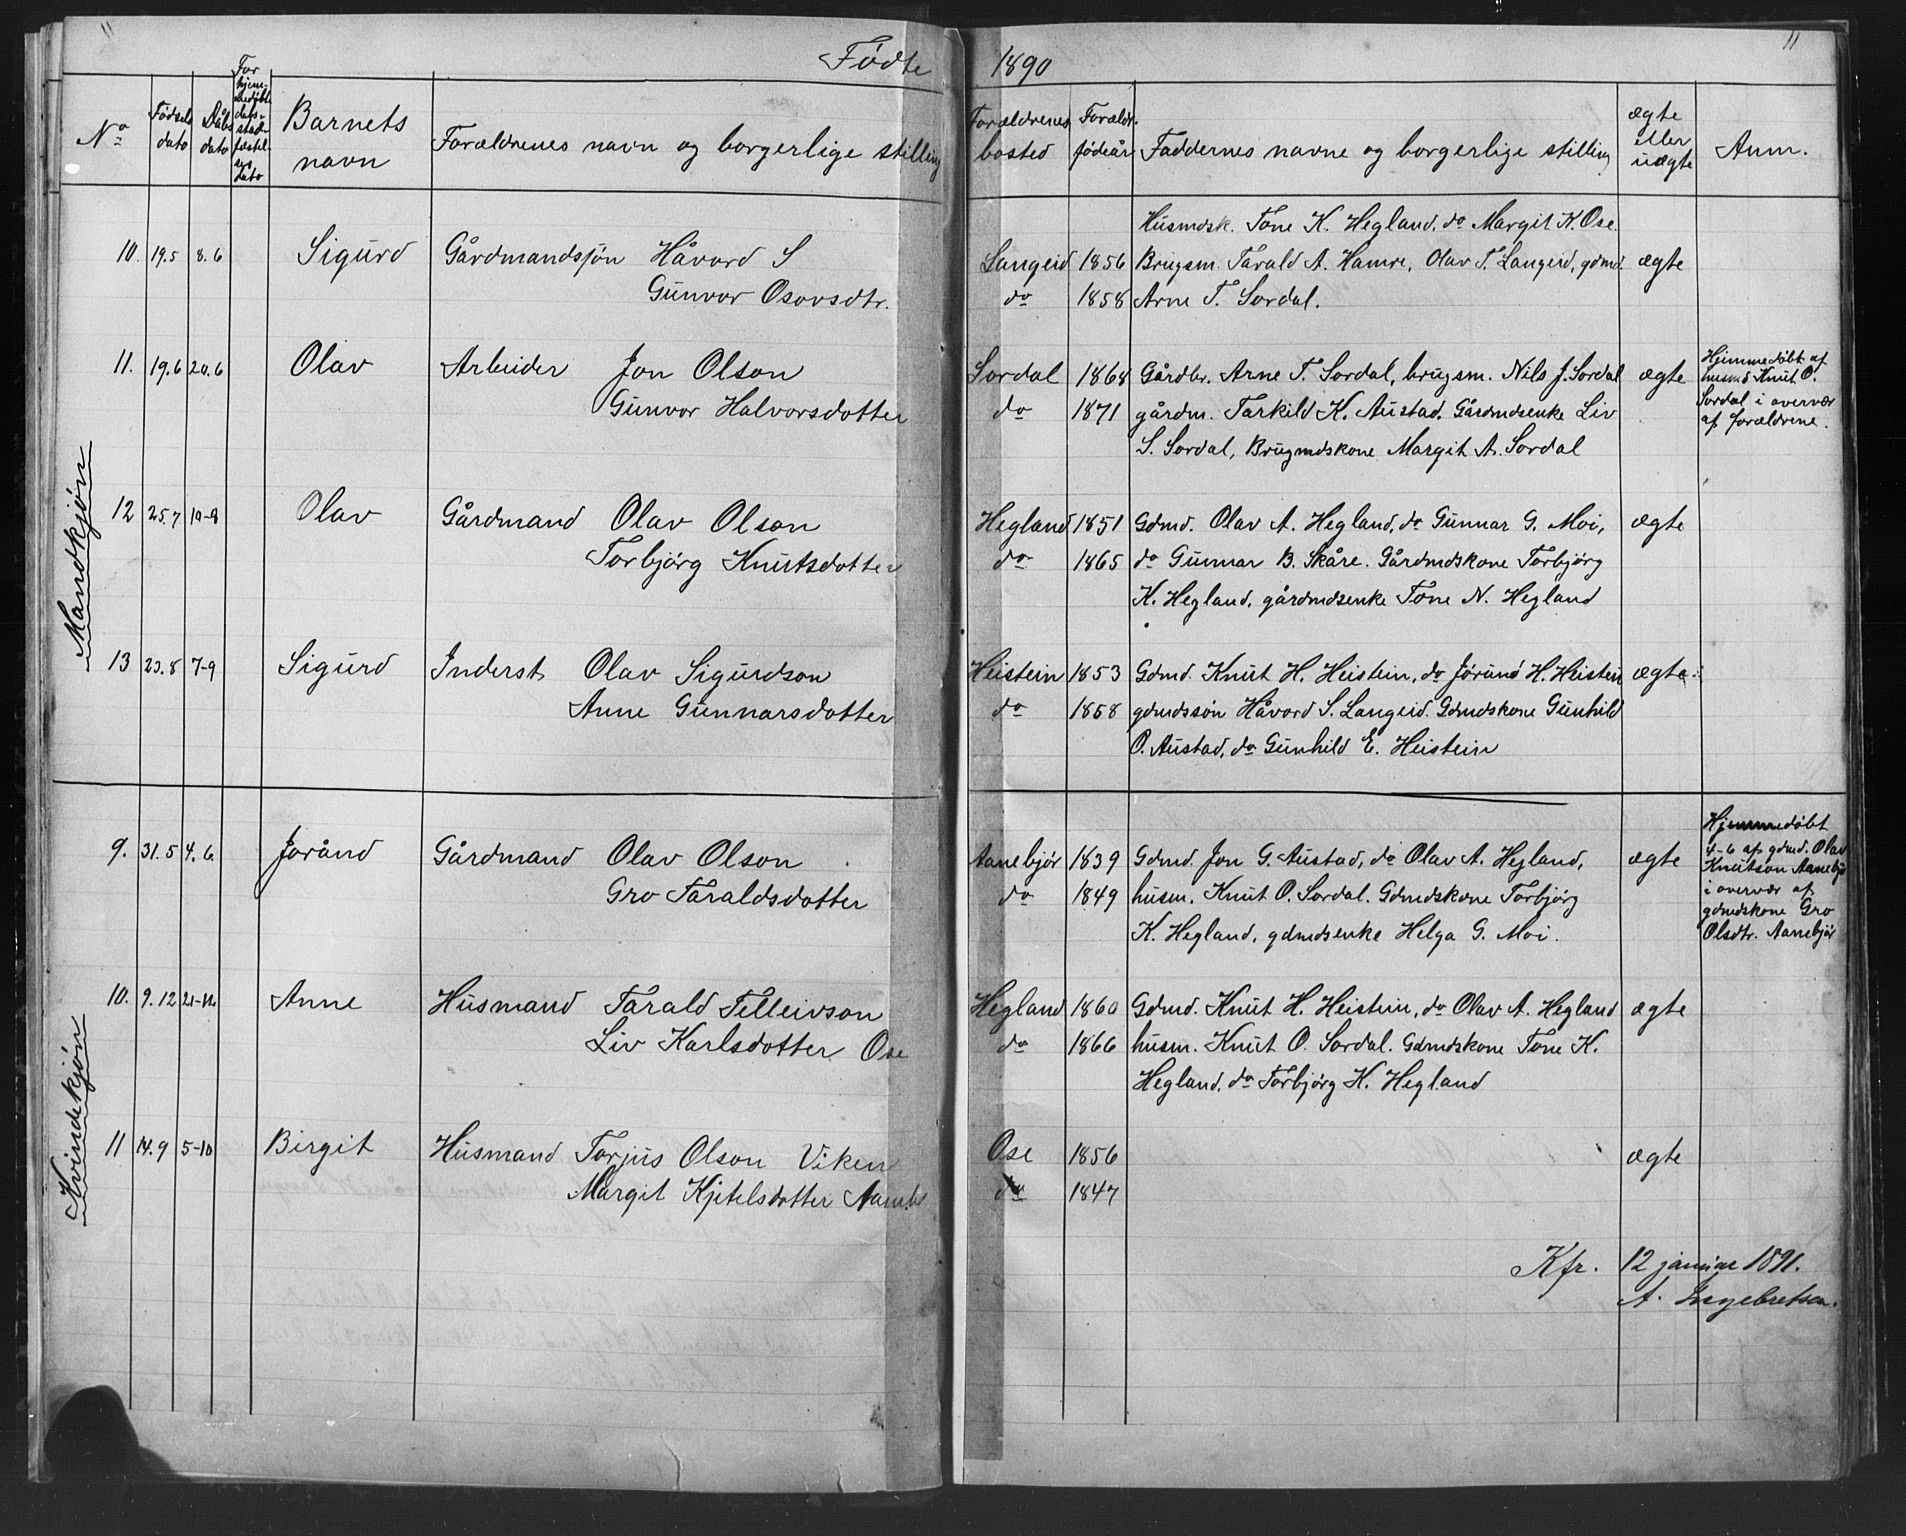 11
11
Fødte 1890
No
Fødsels dato
Dåbs dato
For hjemmedøbte dåbs-stadfæstelses dato
Barnets navn
Forældrenes navn og borgerlige stilling
Forældrenes bosted
Forældr. fødeår
Faddernes navne og borgerlige stilling
ægte eller uægte
Anm.
Mandkjøn
Husmdsk. Tone K. Hegland, do Margit K. Ose
10. 19.5 8.6 Sigurd Gårdmandsjøn Håvord S Langeid 1856 Brugsm. Tarald A. Hamre, Olav T. Langeid, gdmd. ægte
Gunvor Osovsdtr. do 1858 Arne T. Sordal.
11. 19.6 20.6 Olav Arbeider Jon Olson Sordal 1868 Gårdbr. Arne T. Sordal, brugsm. Nils J. Sordal ægte
Gunvor Halvorsdotter do 1871 gårdm. Tarkild K. Austad. Gårdmdsenke Liv
S. Sordal, Brugmdskone Margit A. Sordal
Hjemmedøbt af
husmd Knut O.
Sordal i overvær
af forældrene.
12 25.7 10-8 Olav Gårdmand Olav Olson Hegland 1851 Gdmd. Olav A. Hegland, do Gunnar G. Moi, ægte
Torbjørg Knutsdotter do 1865 do Gunnar B. Skåre. Gårdmdskone Torbjørg
K. Hegland, gårdmdsenke Tone N. Hegland
13 23.8 7-9 Sigurd Inderst Olav Sigurdson Heistein 1853 Gdmd. Knut H. Heistein, do Jørund H. Heistein ægte
Anne Gunnarsdotter do 1858 gdmdssøn Håvord S. Langeid. Gdmdskone Gunhild
O. Austad, do Gunhild E. Heistein
Kvindekjøn
9. 31.5 4.6 Joránd Gårdmand Olav Olson Aanebjør 1839 Gdmd. Jon G. Austad, do Olav A. Hegland, ægte
Gro Taraldsdotter do 1849 husm. Knut O. Sordal. Gdmdskone Torbjørg
K. Hegland, gdmdsenke Helga G. Moi.
Hjemmedøbt
4-6 af gdmd. Olav
Knutson Aanebjø
i overvær af
gdmdskone Gro
Olsdtr. Aanebjør
10. 9.12 21-12 Anne Husmand Tarald Telleivson Hegland 1860 Gdmd. Knut H. Heistein, do Olav A. Hegland ægte
Liv Karlsdotter Ose do 1866 husm. Knut O. Sordal. Gdmdskone Tone K.
Hegland, do Torbjørg K. Hegland
11 14.9 5-10 Birgit Husmand Torjus Olson Viken Ose 1856 ægte
Margit Kjetelsdotter do 1847
Kfr. 12 januar 1891.
A. Engebretsen.